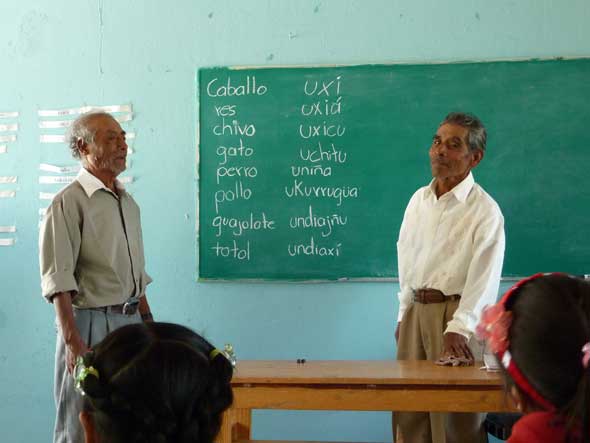 Caballo uxi
res uxiá
chivo uxicu
gato uchitu
perro uniña
pollo ukurrugüa
guajolote undiajñu
totol undiaxi